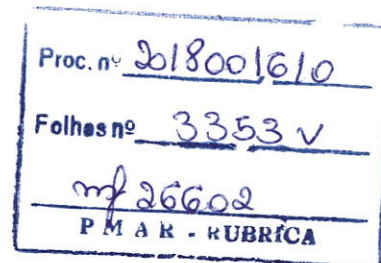 Proc. nº 2018001610
Folhas nº 3353 v
mf 26602
PMAR - RUBRICA